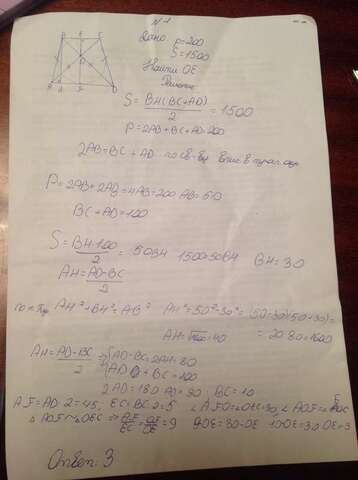 N-1
Дано P=200
S=1500
Найти OE
Решение
S = BH(BC+AD) / 2 = 1500
P=2AB+BC+AD=200
2AB=BC+AD по св-ву
P=2AB+2AB=4AB=200 AB=50
BC+AD=100
S=BH·100 / 2 = 50BH 1500=50BH BH=30
AH=AD-BC / 2
AH²+BH²=AB² AH²=50²-30²=(50-30)(50+30)=
AH=√1600=40 =20·80=1600
AH=AD-BC / 2 ⇒ { AD-BC=2AH=80
AD+BC=100
2AD=180 AD=90 BC=10
AF=AD:2=45 EC=BC:2=5
△AOF~△OEC ⇒ AF/EC=OF/OE=9 9OE=30-OE 10OE=30 OE=3
Ответ: 3